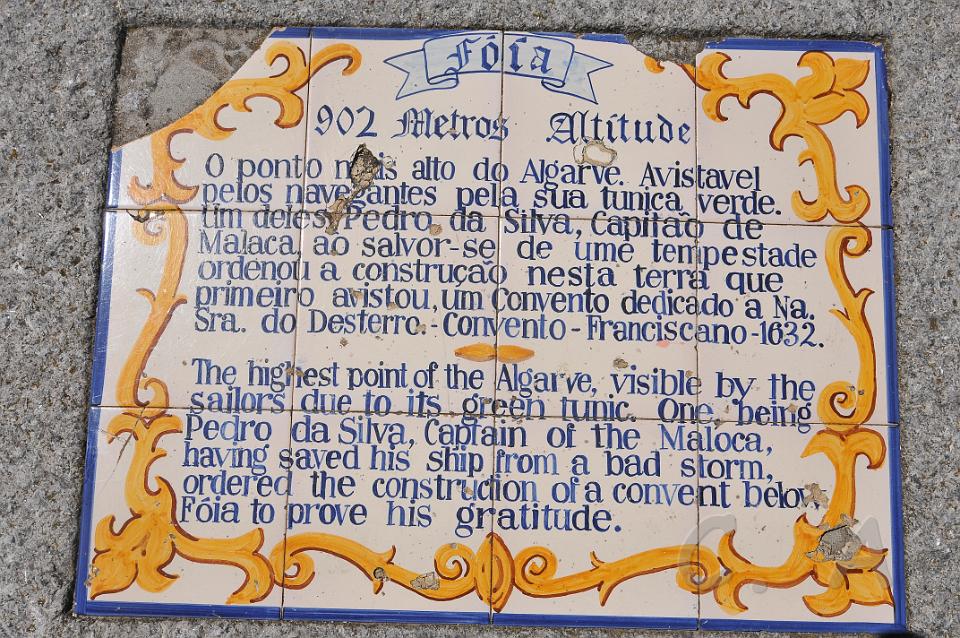 Fóía
902 Metros Altitude
O ponto mais alto do Algarve. Avistavel
pelos navegantes pela sua tunica verde.
Um deles, Pedro da Silva, Capitão de
Malaca ao salvor-se de ume tempestade
ordenou a construção nesta terra que
primeiro avistou, um Convento dedicado a Na.
Sra. do Desterro - Convento - Franciscano - 1632.
The highest point of the Algarve, visible by the
sailors due to its green tunic. One being
Pedro da Silva, Captain of the Maloca,
having saved his ship from a bad storm,
ordered the construction of a convent below
Fóia to prove his gratitude.